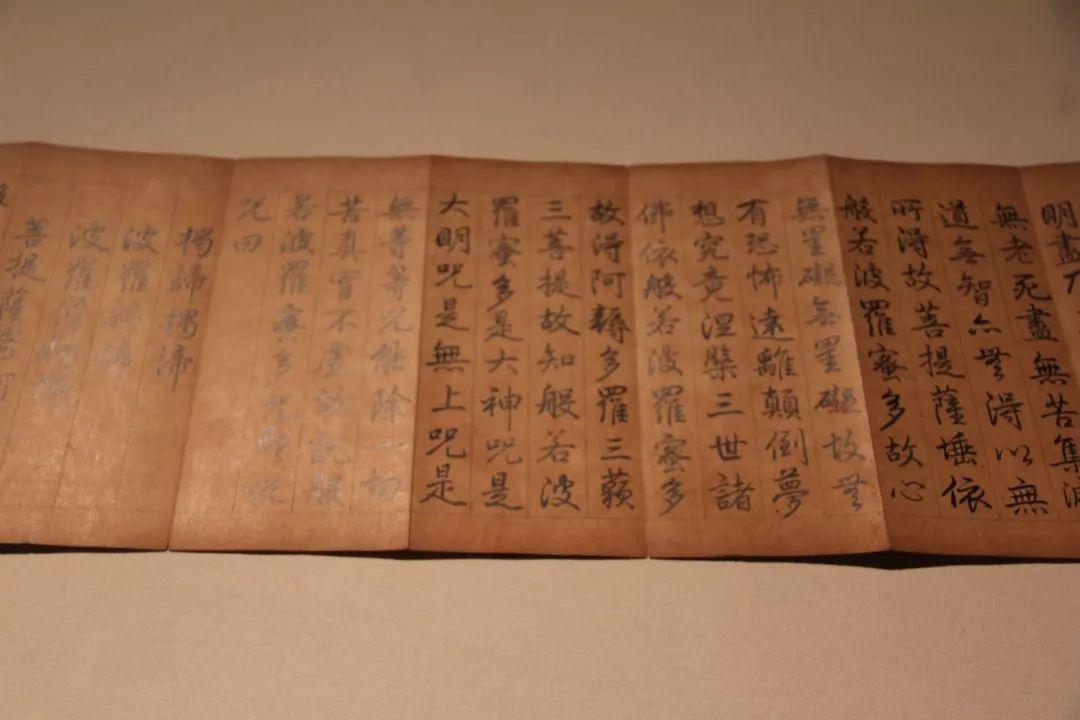 明盡乃
無老死盡無苦集滅
道无智亦無得以無
所得故菩提薩埵依
般若波羅蜜多故心
無罣礙无罣礙故無
有恐怖遠離顛倒夢
想究竟涅槃三世諸
佛依般若波羅蜜多
故得阿耨多羅三藐
三菩提故知般若波
羅蜜多是大神呪是
大明呪是無上呪是
無等等呪能除一切
苦真實不虛故說般
若波羅蜜多呪即說
呪曰
揭諦揭諦
波羅揭諦
波羅僧揭諦
菩提薩婆訶